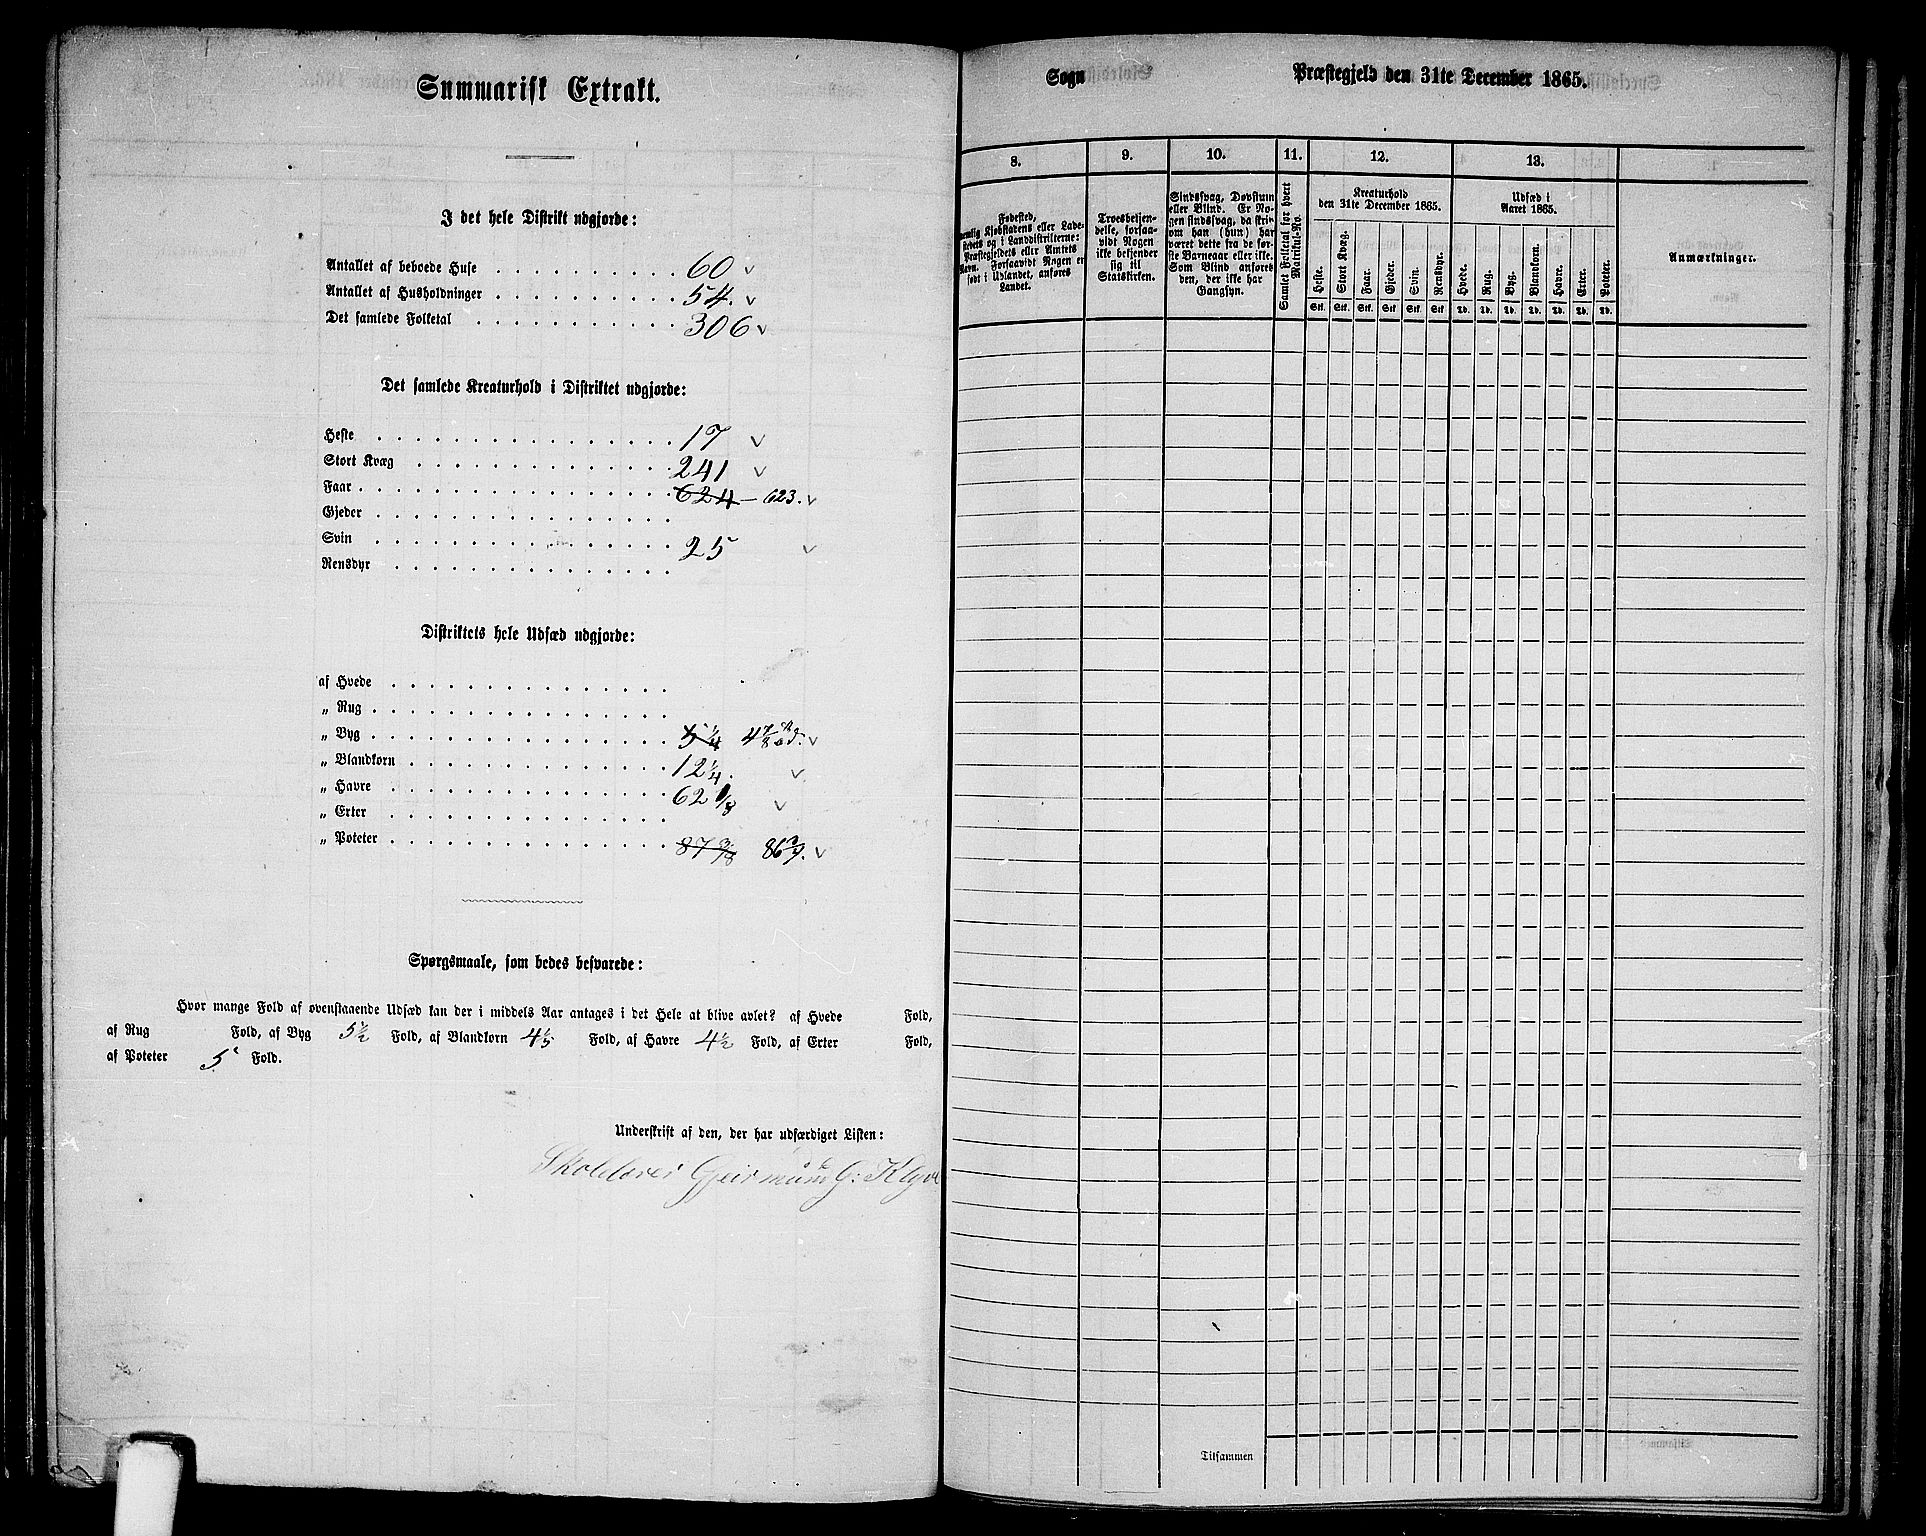 Summarisk Extrakt.
I det hele Distrikt udgjorde:
Antallet af beboede Huse 60 v
Antallet af Husholdninger 54. v
Det samlede Folketal 306 v
Det samlede Kreaturhold i Distriktet udgjorde:
Heste 17 v
Stort Kvæg 241 v
Faar 624 — 623. v
Gjeder
Svin 25 v
Rensdyr
Distriktets hele Udsæd udgjorde:
af Hvede
„ Rug
„ Byg 5 1/4 4 7/8 v
„ Blandkorn 12 1/4. v
„ Havre 62 1/8 v
„ Erter
„ Poteter 87 3/8 v
Spørgsmaale, som bedes besvarede:
Hvor mange Fold af ovenstaaende Udsæd kan der i middels Aar antages i det Hele at blive avlet? af Hvede Fold,
af Rug Fold, af Byg 5 1/2 Fold, af Blandkorn Fold, af Havre 4 1/2 Fold, af Erter Fold,
af Poteter 5 Fold.
Underskrift af den, der har udfærdiget Listen:
Skolelærer Geirmun G: Klyve
Sogn Præstegjeld den 31te December 1865.
8. 9. 10. 11. 12. 13.
Fødested,
nemlig Kjøbstadens eller Lade-
stedets og i Landdistrikterne:
Præstegjeldets eller Amtets
Navn. Forsaavidt Nogen er
født i Udlandet, anføres
Landet.
Troesbekjen-
delse, forsaa-
vidt Nogen
ikke bekjender
sig til
Statskirken.
Sindssvag, Døvstum
eller Blind. Er No-
gen sindssvag, da skriv
om han (hun) har
været dette fra de før-
ste Barneaar eller ikke.
Som Blind anføres
den, der ikke har
Gangsyn.
Samlet Folketal for hvert
Matrikul-No.
Kreaturhold
den 31te December 1865.
Heste. Stort Kvæg. Faar. Gjeder. Svin. Rensdyr.
Stk. Stk. Stk. Stk. Stk. Stk
Udsæd i
Aaret 1865.
Hvede. Rug. Byg. Blandkorn. Havre. Erter. Poteter.
Td. Td. Td. Td. Td. Td. Td.
Anmærkninger.
Tilsammen